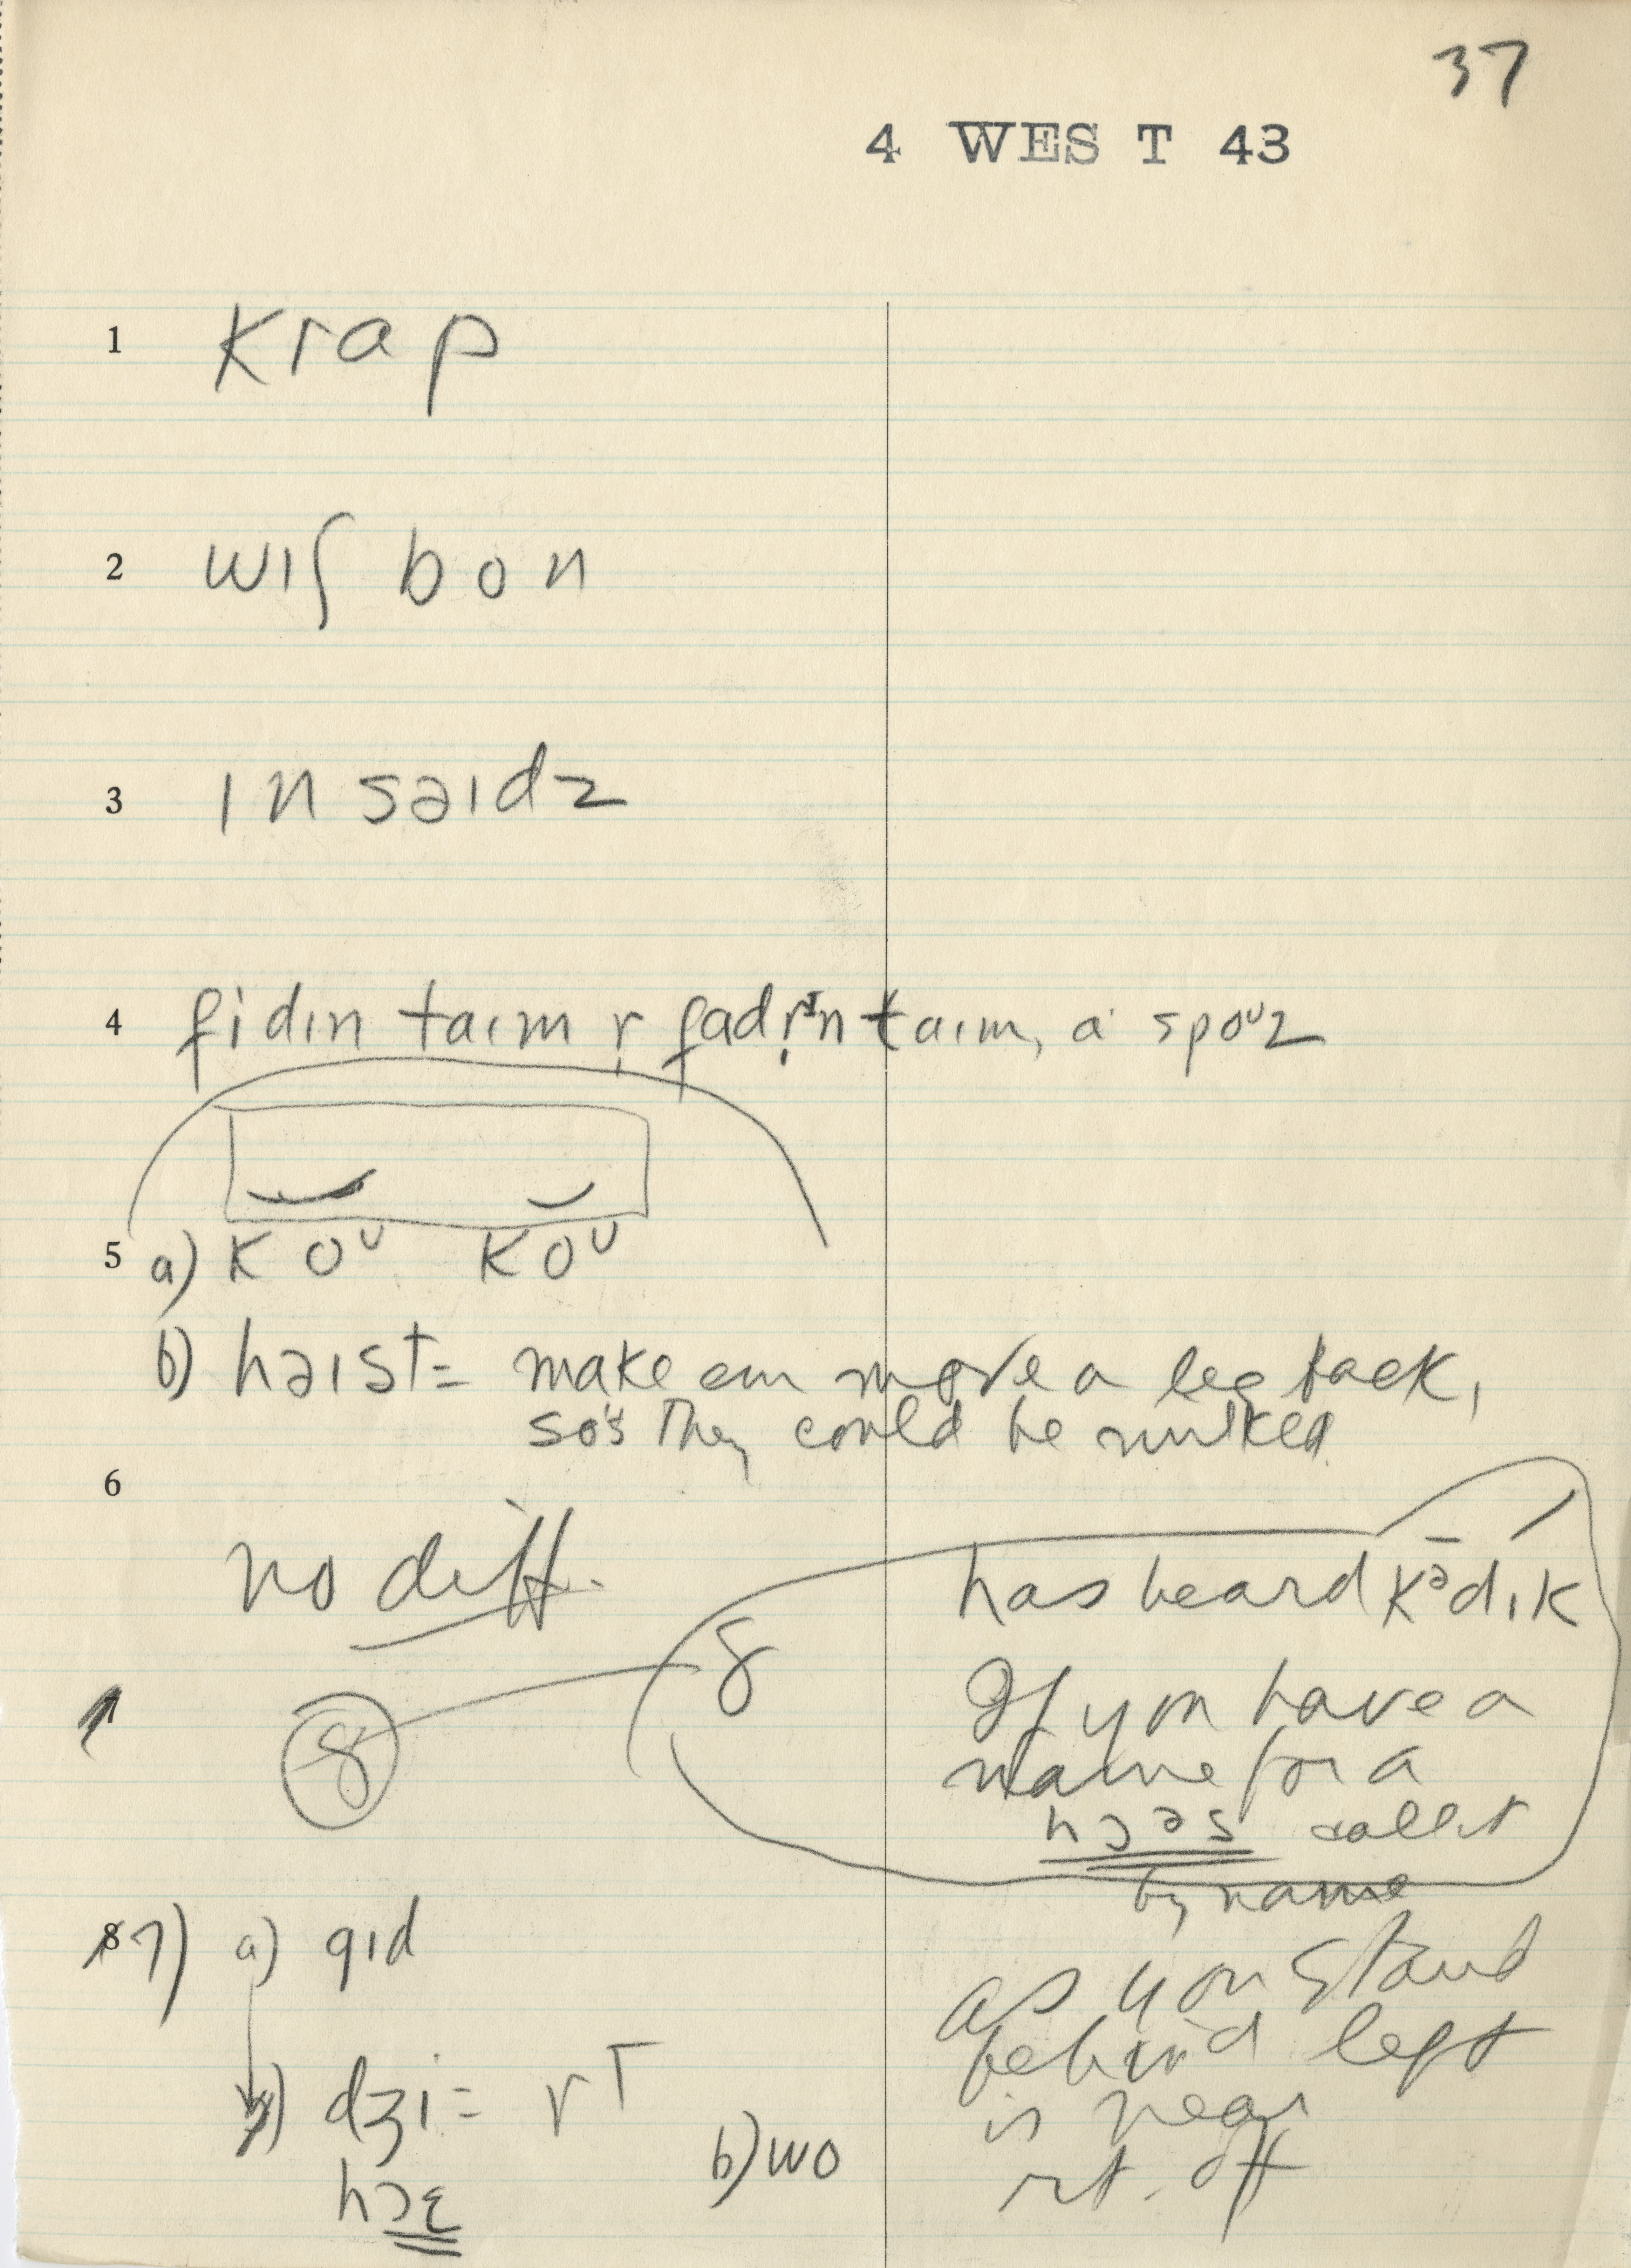 37
4 WEST 43
1 krap
2 wɪʃ bon
3 ɪnsaɪdz
4 fidɪn taɪm r̩ fadr̩ɪn taɪm, a spoᶷz
5 a) koᶷ koᶷ
b) haɪst = make em move a leg back,
so's they could be milked
6
no diff.
8
8 has heard kᵊdɪk
If you have a
name for a
hɔəs call it
by name
87) a) gɪd
dʒi = rt
hɔ
b) wo
as you stand
behind left
is near
rt. off